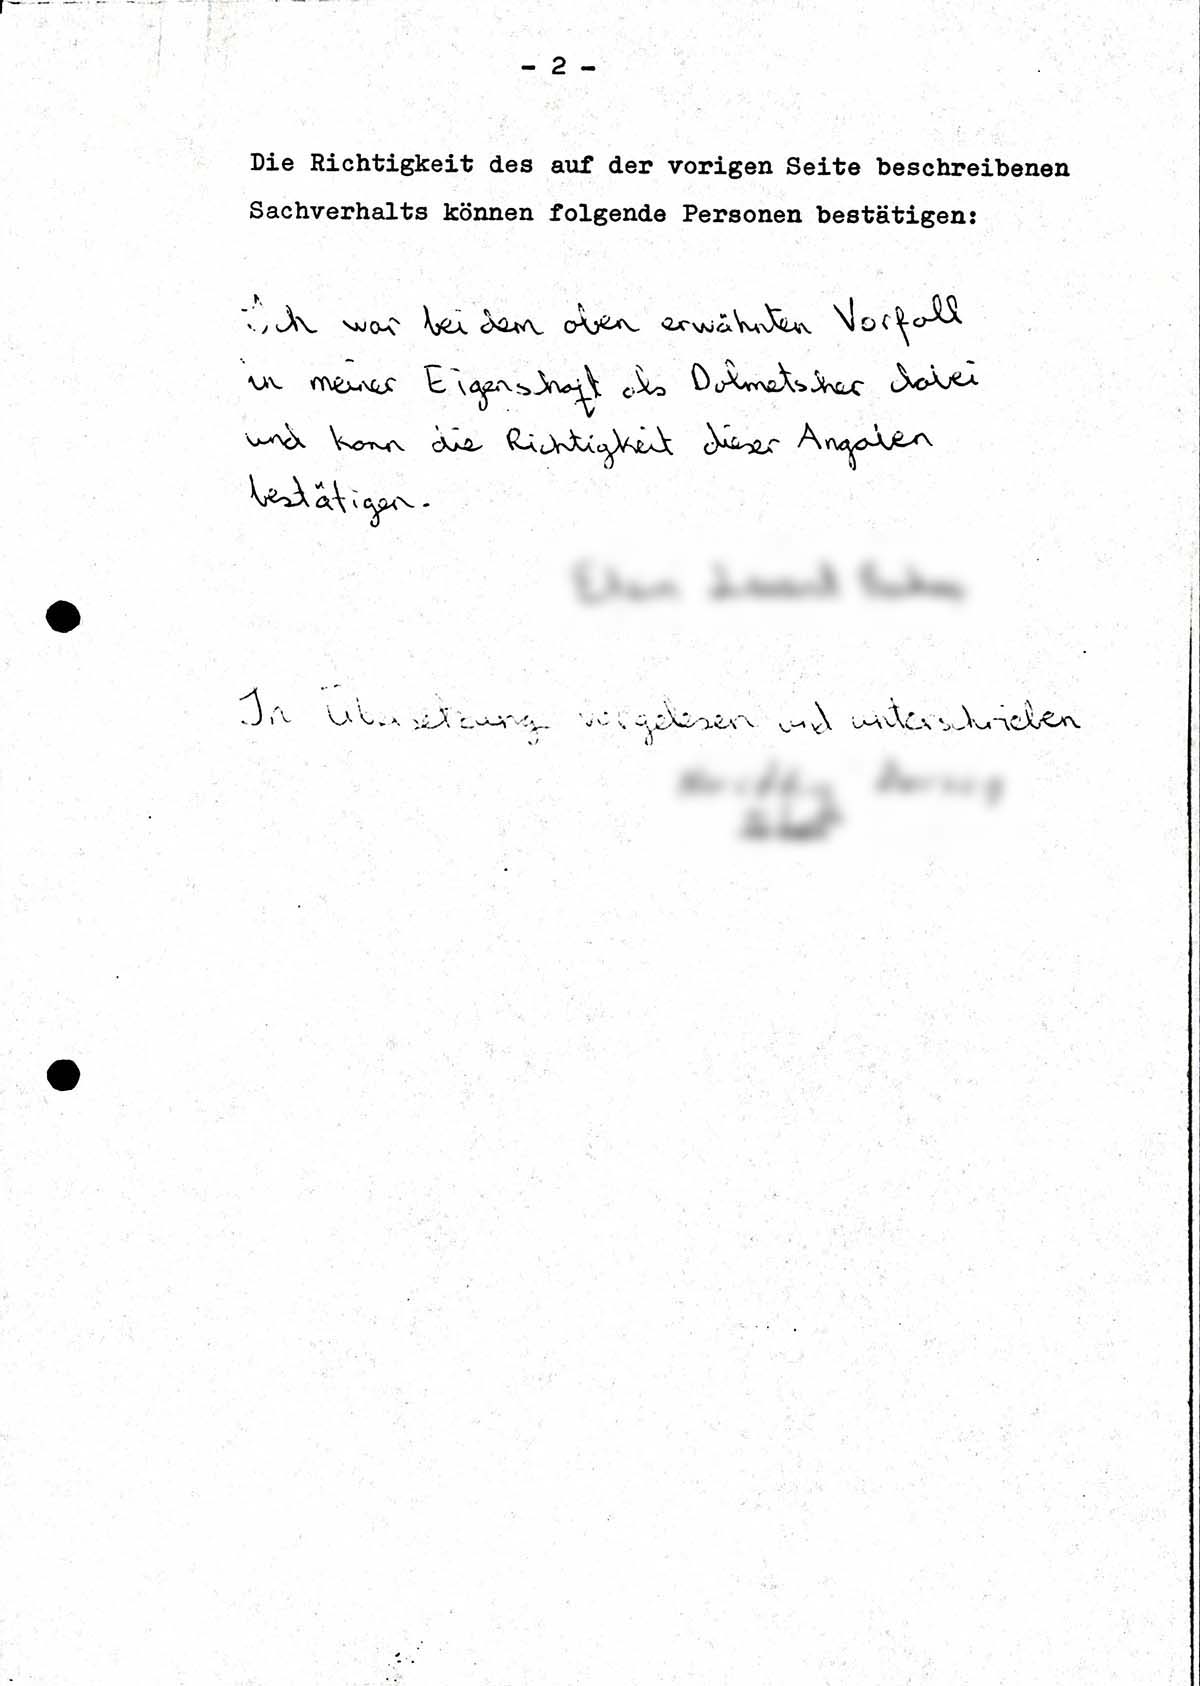 - 2 -
Die Richtigkeit des auf der vorigen Seite beschreibenen
Sachverhalts können folgende Personen bestätigen:
Ich war bei dem oben erwähnten Vorfall
in meiner Eigenschaft als Dolmetscher dabei
und kann die Richtigkeit dieser Angaben
bestätigen.
In Übersetzung vorgelesen und unterschrieben